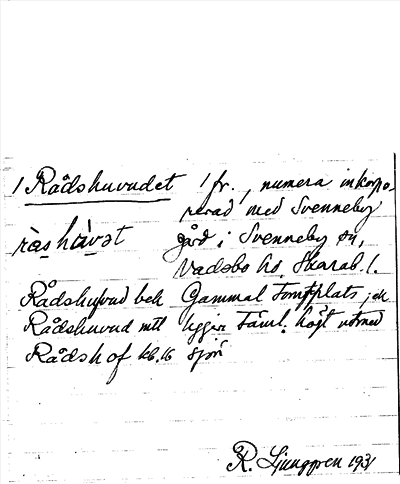 1 Rådshuvudet 1 fr., numera inkorpo-
rerad med Svenneby
ràshàvət gård i Svenneby sn,
Vadsbo hd, Skarab. l.
Rådshufvud bek Gammal Tomtplats; ek
Rådshuvud mtl ligger täml. högt utmed
Rådshof kb. 16 sjön
R. Ljunggren 1931